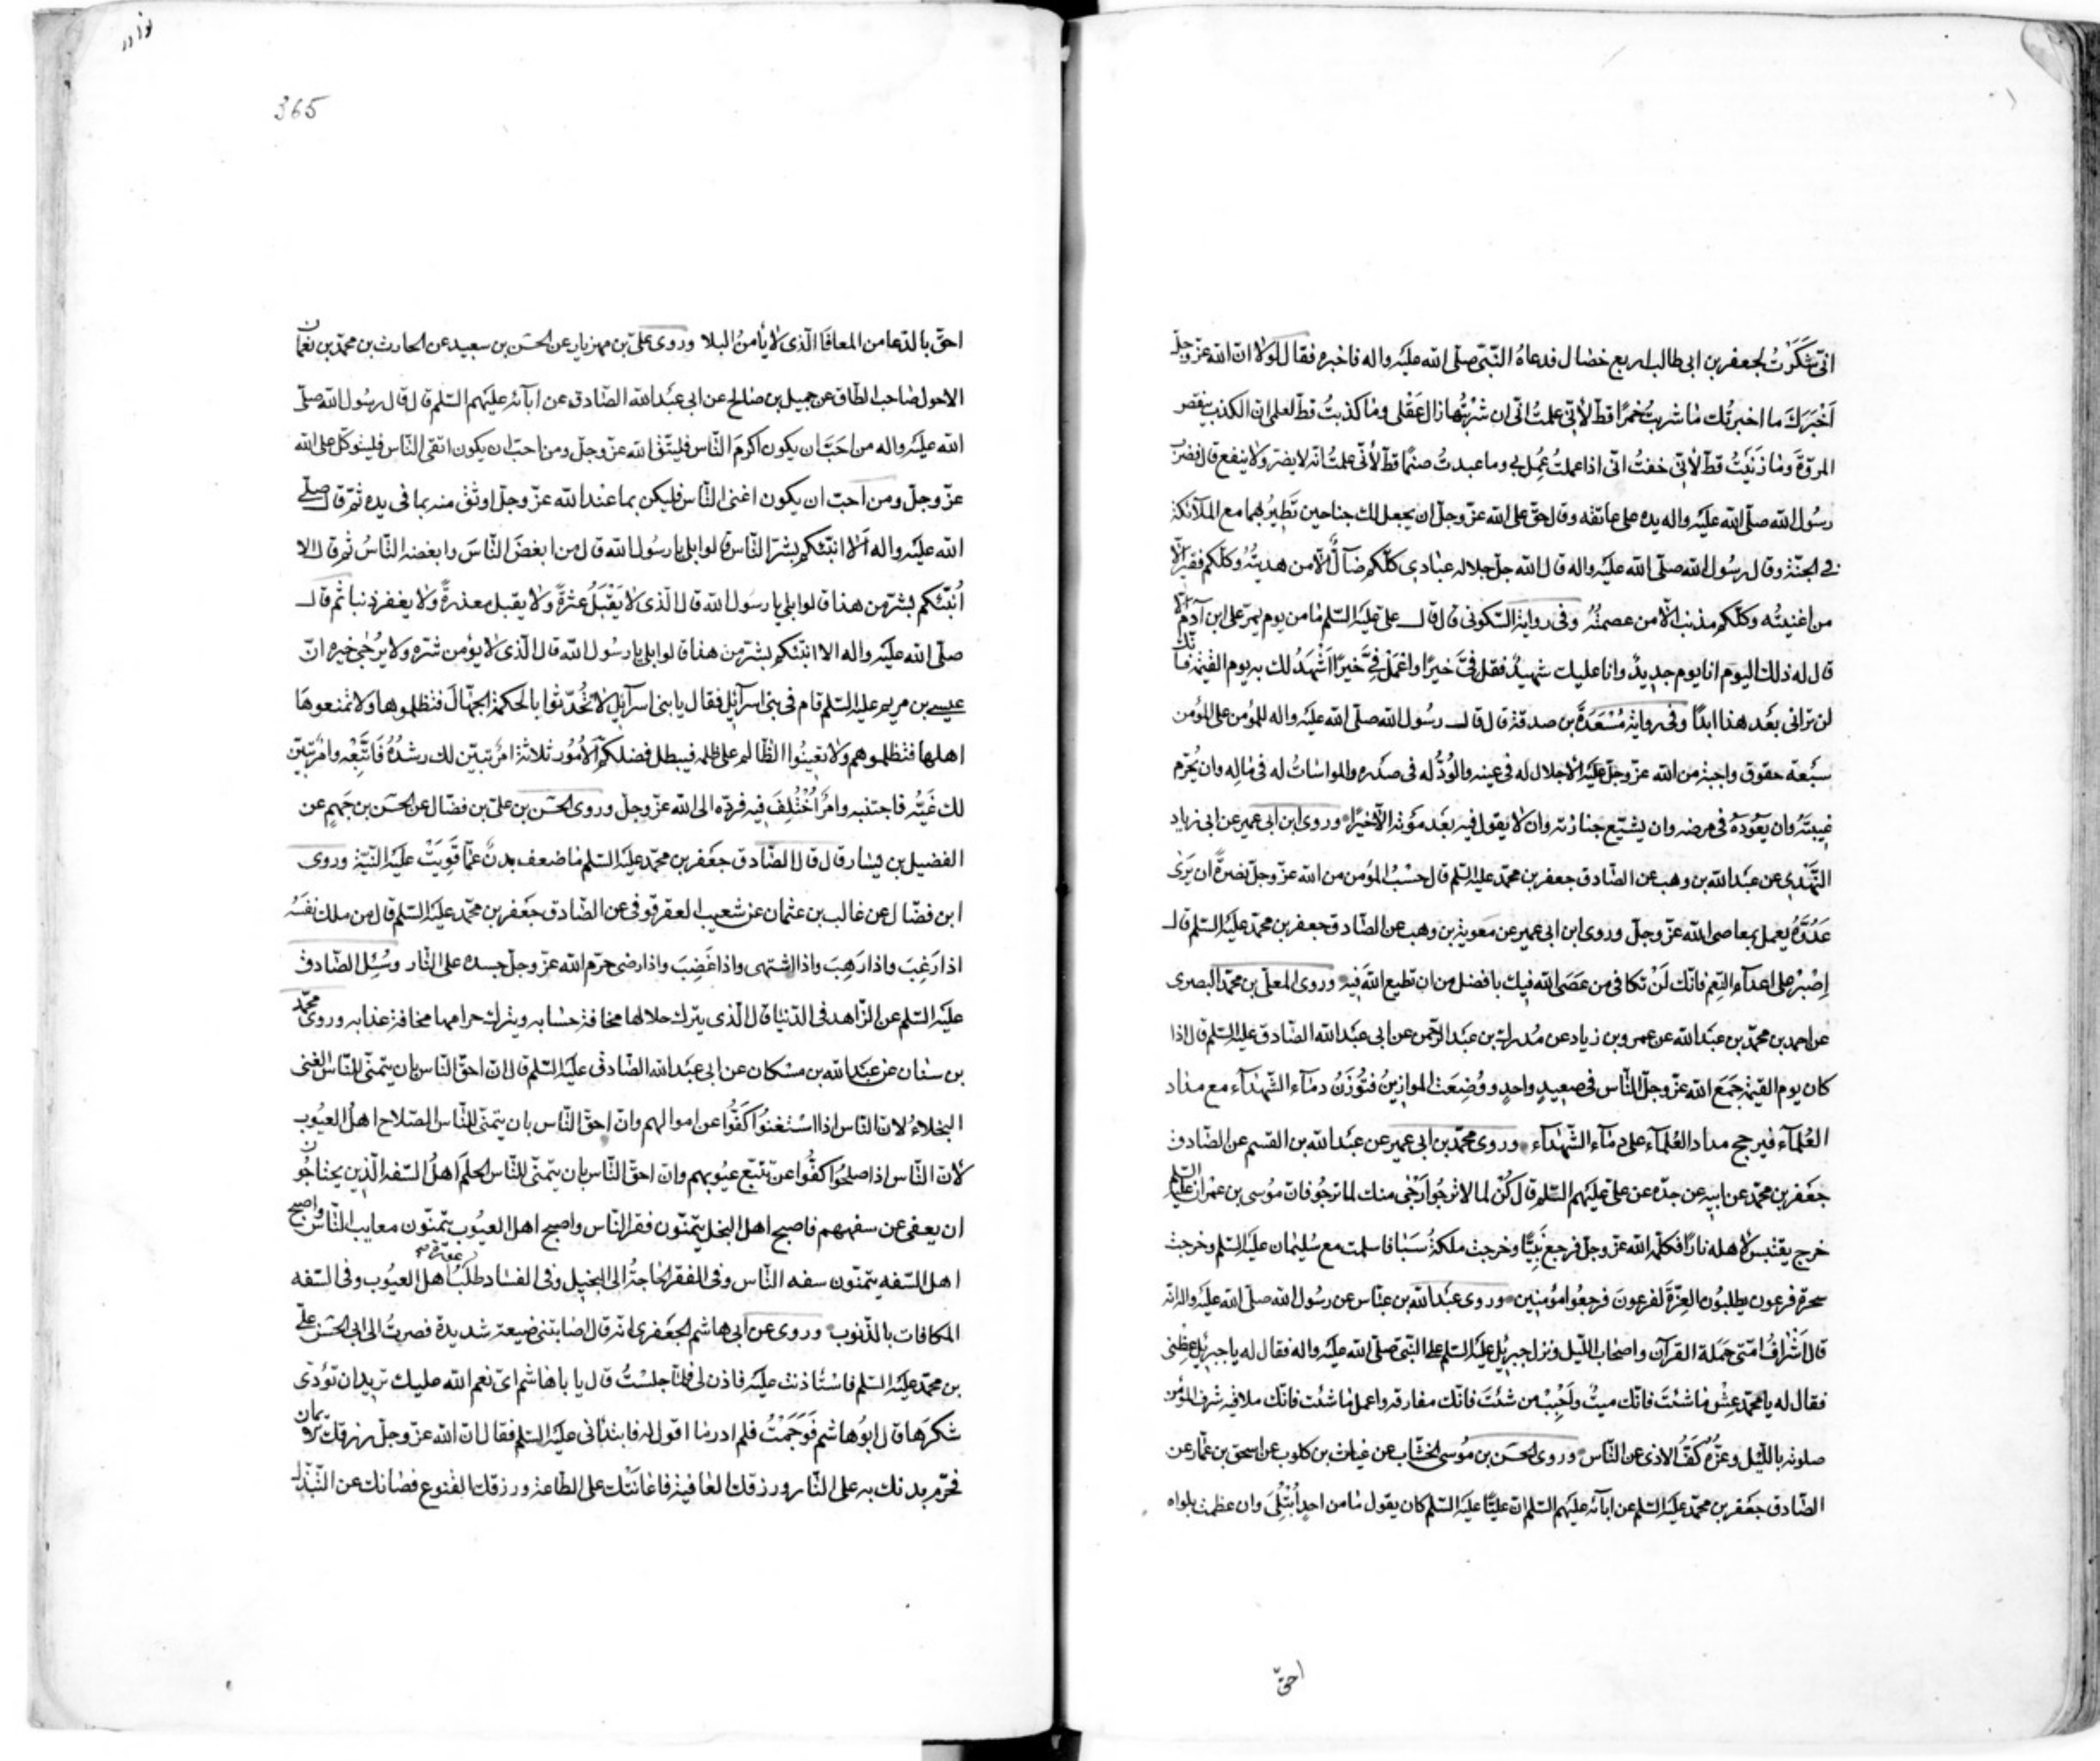 انّى شَكَرْتُ لجعفر بن ابى طالب اربع خصال فدعاهُ النّبىّ صلّى الله عليْه واله فاخبره فقال لَوْلا انّ الله عزّ وجلّ
اَخْبَرَكَ ما اخبرتُك ما شربتُ خمرًا قطّ لأنّى علمتُ انّى ان شربْتُها زال عَقْلى وما كذبتُ قطّ لعلمى انّ الكذب ينقص
المروّة وما زنَيْتُ قطّ لأنّى خفتُ انّى اذا عملتُ عُمِل بى وما عبدتُ صنمًا قطّ لأنّى علمتُ انّه لا يضرّ ولا ينفع قال فضربَ
رسُول الله صلّى الله عليْه واله يده على عاتقه وقال حقّ على الله عزّ وجلّ ان يجعل لك جناحين تَطيرُ بهما مع الملآئكة
فى الجنّة وقال رسُول الله صلّى الله عليْه واله قال الله جلّ جلاله عبادى كلّكم ضآلٌّ الّا من هديتُهُ وكلّكم فقيرٌ الّا
من اغنيتُه وكلّكم مذنب الّا من عصمتُهُ وفى رواية السّكونى قال قال على عليْه السّلم ما من يوم يمرّ على ابن آدم الّا
قال له ذلك اليوم انا يوم جديدٌ وانا عليك شهيدٌ فقل فىَّ خيرًا واعْمَلْ فِىَّ خيرًا اَشْهَدُ لك به يوم القيٰمة فانّك
لن ترانى بعْد هذا ابدًا وفى رواية مَسْعَدَةَ بن صدقة قال قال رسُول الله صلّى الله عليْه واله للمؤمن على المؤمن
سبْعة حقوق واجبة من الله عزّ وجلّ عليْه الأجلال له فى عينه والوُدُّ له فى صدْره والمواسات له فى مالِه وان يُحرّم
غيبتَهُ وان يعُودَهُ فى مرضه وان يشيّع جنازته وان لا يقول فيه بعْد موْته الّا خيرًا وروى ابن ابى عمير عن ابى زياد
النّهْدِى عن عبْد الله بن وهب عن الصّادق جعفر بن محمّد عليْه السّلم قال حسْبُ المؤمن من الله عزّ وجلّ نصرةً ان يَرَىٰ
عَدُوَّهُ يعمل بمعاصى الله عزّ وجلّ وروى ابن ابى عمير عن معٰوية بن وهب عن الصّادق جعفر بن محمّد عليْه السّلم قال
اِصْبِرْ على اعدآء النِّعم فانّك لَنْ تكافى من عَصَى الله فيك بافضل من ان تطيع اللهَ فيه وروى المعلّى بن محمّد البصرى
عن احمد بن محمّد بن عبْد الله عن عمرو بن زياد عن مُدرك بن عبْد الرّحمن عن ابى عبْد الله الصّادق عليْه السّلم قال اذا
كان يوم القيٰمة جَمَعَ الله عزّ وجلّ النّاس فى صعيدٍ واحدٍ ووُضِعَت الموازينُ فتُوزَنُ دمٰآء الشّهدٰآء مع مداد
العُلمٰآء فيرجح مداد العُلمٰآء على دمٰآء الشّهدٰآء وروى محمّد بن ابى عمير عن عبْد الله بن القسم عن الصّادق
جعْفر بن محمّد عن ابيه عن جدّه عن علىّ عليْهم السّلم قال كُنْ لما لا ترجُو اَرْجٰى منك لما ترجُو فانّ مُوسى بن عمرٰان عليْه السّلم
خرج يقتبس لأهله نارًا فكلّمه الله عزّ وجلّ فرجع نَبِيًّا وخرجت ملكةُ سَبَأ فاسلمت مع سُليمٰان عليْه السّلم وخرجتْ
سحرة فرعون يطلبُون العِزّةَ لفرعونَ فرجعُوا مُؤمنين وروى عبْد الله بن عبّاس عن رسُول الله صلّى الله عليْه واله انّه
قال اَشْرافُ امّتى حَمَلة القرآن واصْحاب اللّيل ونزل جبرئيل عليْه السّلم على النّبى صلّى الله عليْه واله فقال له يا جبرئيل عِظْنى
فقال له يا محمّد عِشْ ما شئتَ فانّك ميتٌ واَحْبِبْ من شئتَ فانّك مفارقه واعمل ما شئت فانّك ملاقيه شرف المؤمن
صلوته باللّيل وعزّه كَفُّ الاذى عن النّاس وروى الحسَن بن مُوسى الخشّاب عن غياث بن كلوب عن اسحق بن عمّار عن
الصّادق جعْفر بن محمّد عليْه السّلم عن ابآئه عليْهم السّلم انّ عليًّا عليْه السّلم كان يقول ما من احدٍ اُبْتُلِىَ وان عظمت بلواه
احقّ
365
احقّ بالدّعا من المعافا الّذى لا يأمنُ البلا وروى علىّ بن مهزيار عن الحسَن بن سعيد عن الحارث بن محمّد بن نعمان
الاحول صاحب الطّاق عن جميل بن صالح عن ابى عبْد الله الصّادق عن ابآئه عليْهم السّلم قال قال رسُول الله صلّى
الله عليْه واله من احَبَّ ان يكون اكرمَ النّاس فليتّق الله عزّ وجلّ ومن احبّ ان يكون اتقى النّاس فليتوكّل على الله
عزّ وجلّ ومن احبّ ان يكون اغنى النّاس فليكن بما عند الله عزّ وجلّ اوثق منه بما فى يده ثمّ قال صلّى
الله عليْه واله اَلا انبّئكم بشرّ النّاس قالوا بلى يا رسُول الله قال من ابغضَ النّاسَ وابغضه النّاسُ ثمّ قال الا
اُنبّئكم بشرّ من هذا قالوا بلى يا رسُول الله قال الّذى لا يَقْبَلُ عثرةً ولا يقبل معذرةً ولا يغفر ذنبا ثم قال
صلّى الله عليْه واله الا انبّئكم بشرّ من هذا قالوا بلى يا رسُول الله قال الّذى لا يؤمن شرّه ولا يُرْجٰى خيره انّ
عيسى بن مريم عليْه السّلم قام فى بنى اسرآئيل فقال يا بنى اسرآئيل لا تُحدّثوا بالحكمة الجهّالَ فتظلموها ولا تمنعوها
اهلها فتظلموهم ولا تعينُوا الظّالم على ظلمه فيبطل فضلكم اَلأمُور ثلاثة امرٌ تبيّن لك رشدُهُ فَاتَّبِعْه وامرٌ تبيّن
لك غَيُّه فاجتنبه وامرٌ اُخْتُلِفَ فيه فردّه الى الله عزّ وجلّ وروى الحسَن بن علىّ بن فضّال عن الحسَن بن جَهمٍ عن
الفضيل بن يسٰار قال قال الصّادق جعْفر بن محمّد عليْه السّلم ما ضعف بدنٌ عمّا قَوِيَتْ عليْه النّيّة وروى
ابن فضّال عن غالب بن عثمان عن شعيب العقرقوفى عن الصّادق جعْفر بن محمّد عليْه السّلم قال من ملك نفسَهُ
اذا رَغِبَ واذا رَهِبَ واذا اشتهى واذا غَضِبَ واذا رضى حرّم الله عزّ وجلّ جسده على النّار وسُئِل الصّادق
عليْه السّلم عن الزّاهد فى الدّنيا قال الّذى يترك حلالها مخافة حسٰابه ويترك حرامها مخافة عذابه وروى محمّد
بن سنٰان عن عبْد الله بن مسْكان عن ابى عبْد الله الصّادق عليْه السّلم قال انّ احقّ النّاس بان يتمنّى للنّاس الغنى
البخلاءُ لانّ النّاس اذا اسْتغنَوْا كَفُّوا عن اموالهم وانّ احقّ النّاس بان يتمنّى للنّاس الصّلاح اهلُ العيُوب
لأنّ النّاس اذا صلحُوا كفُّوا عن تتبّع عيُوبهم وانّ احقّ النّاس بان يتمنّى للنّاس الحلمَ اهلُ السّفه الّذين يحتاجُون
ان يعفى عن سفههم فاصبح اهل البخل يتمنّون فقر النّاس واصبح اهل العيُوب يتمنّون معايب النّاس واصبح
اهل السّفه يتمنّون سفه النّاس وفى الفقر الحاجةُ الى البخيل وفى الفسٰاد طلَبُ عورة اهل العيُوب وفى السّفه
المكافات بالذّنوب وروى عن ابى هاشم الجعْفرى انّه قال اصٰابتنى ضيعة شديدة فصرتُ الى ابى الحسَن علىّ
بن محمّد عليْه السّلم فاستأذنت عليْه فاذن لى فلمّا جلسْتُ قال يا با هٰاشم اىّ نعم الله عليك تريد ان تؤدّى
شكرَها قال ابُو هاشم فَوَجَمْتُ فلم ادر ما اقول له فابتدأنى عليْه السّلم فقال انّ الله عزّ وجلّ رزقك الأيمان
فحرّم بدنك به على النّار ورزقك العٰافية فاعٰانَتْك على الطّاعة ورزقك القنوع فصٰانك عن التّبذّل